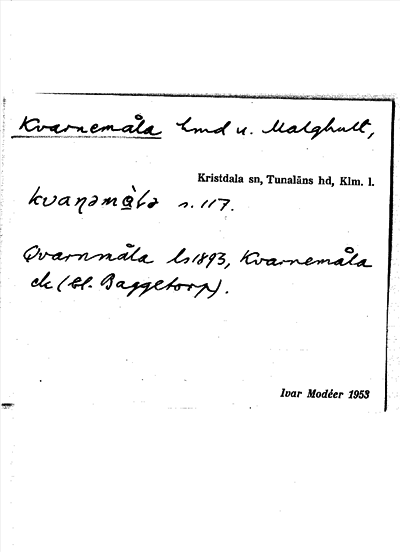 Kvarnemåla lmd u. Malghult,
Kristdala sn, Tunaläns hd, Klm. l.
kvaɳəmàla s. 117.
Qvarnmåla ls 1893, Kvarnemåla
ek (bl. Baggetorp).
Ivar Modéer 1953